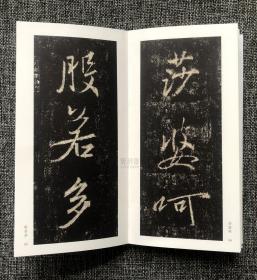 莎婆呵
般若多